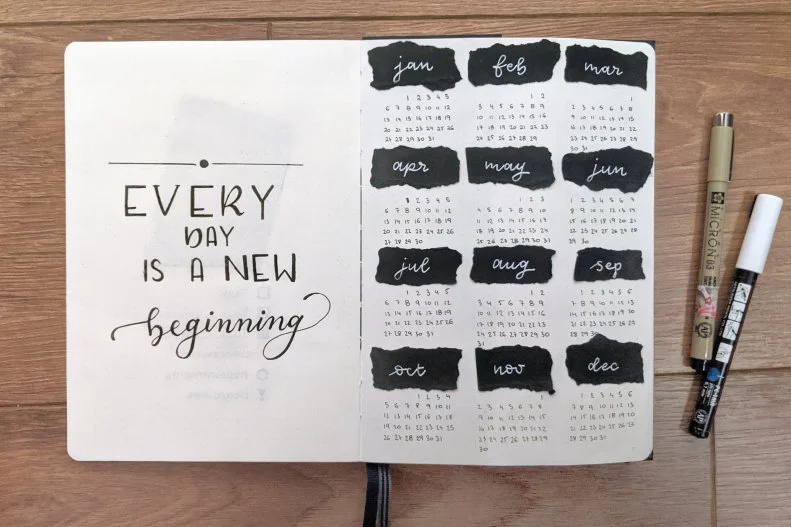 EVERY
DAY
IS A NEW
beginning
jan
1 2 3 4 5
6 7 8 9 10 11 12
13 14 15 16 17 18 19
20 21 22 23 24 25 26
27 28 29 30 31
feb
1 2
3 4 5 6 7 8 9
10 11 12 13 14 15 16
17 18 19 20 21 22 23
24 25 26 27 28
mar
1
2 3 4 5 6 7 8
9 10 11 12 13 14 15
16 17 18 19 20 21 22
23 24 25 26 27 28 29
30 31
apr
1 2 3 4 5
6 7 8 9 10 11 12
13 14 15 16 17 18 19
20 21 22 23 24 25 26
27 28 29 30
may
1 2 3
4 5 6 7 8 9 10
11 12 13 14 15 16 17
18 19 20 21 22 23 24
25 26 27 28 29 30 31
jun
1 2 3 4 5 6 7
8 9 10 11 12 13 14
15 16 17 18 19 20 21
22 23 24 25 26 27 28
29 30
jul
1 2 3 4 5
6 7 8 9 10 11 12
13 14 15 16 17 18 19
20 21 22 23 24 25 26
27 28 29 30 31
aug
1 2
3 4 5 6 7 8 9
10 11 12 13 14 15 16
17 18 19 20 21 22 23
24 25 26 27 28 29 30
31
sep
1 2 3 4 5 6
7 8 9 10 11 12 13
14 15 16 17 18 19 20
21 22 23 24 25 26 27
28 29 30
oct
1 2 3 4
5 6 7 8 9 10 11
12 13 14 15 16 17 18
19 20 21 22 23 24 25
26 27 28 29 30 31
nov
1
2 3 4 5 6 7 8
9 10 11 12 13 14 15
16 17 18 19 20 21 22
23 24 25 26 27 28 29
30
dec
1 2 3 4 5 6
7 8 9 10 11 12 13
14 15 16 17 18 19 20
21 22 23 24 25 26 27
28 29 30 31
MICRON